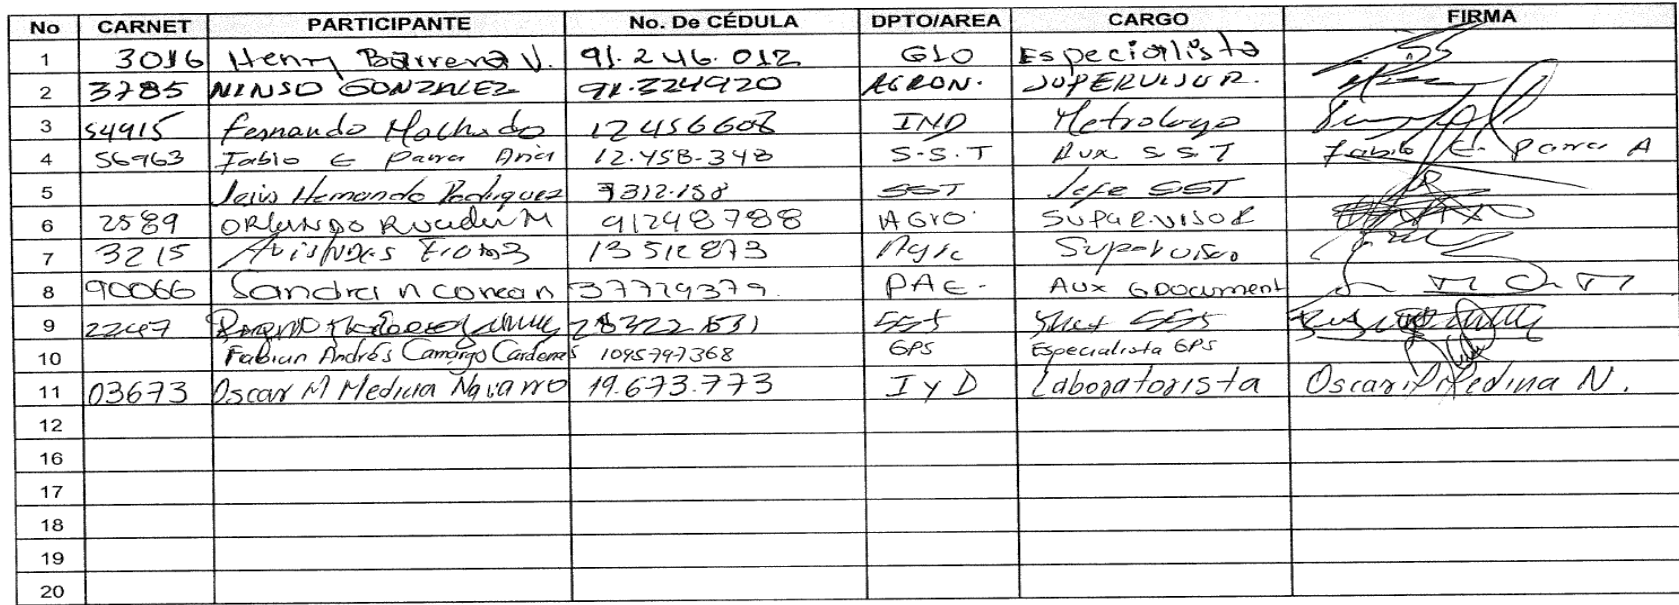 No CARNET PARTICIPANTE No. De CÉDULA DPTO/AREA CARGO FIRMA
1 3016 Henry Barrera V. 91.246.012 GLO Especialista
2 3785 NINSO GONZALEZ 91.324920 AGRON. SUPERVISOR.
3 54915 Fernando Machado 12456608 IND Metrologo
4 56963 Fabio E Parra Aria 12.458.348 S.S.T Aux S.S.T Fabio E. Parra A
5 Hernando Rodriguez 9312.158 SST Jefe SST
6 2589 ORLANDO M 91248788 AGRO. SUPERVISOR
7 3215 13512873 Supervisor
8 90066 Sandra 37729379. PAE- Aux GDocument
9 2247 SST SST
10 Fabian Andrés Camargo Cardenas 1095797368 GPS Especialista GPS
11 03673 Oscar M Medina Navarro 19.673.773 I y D Laboratorista Oscar Medina N.
12
16
17
18
19
20